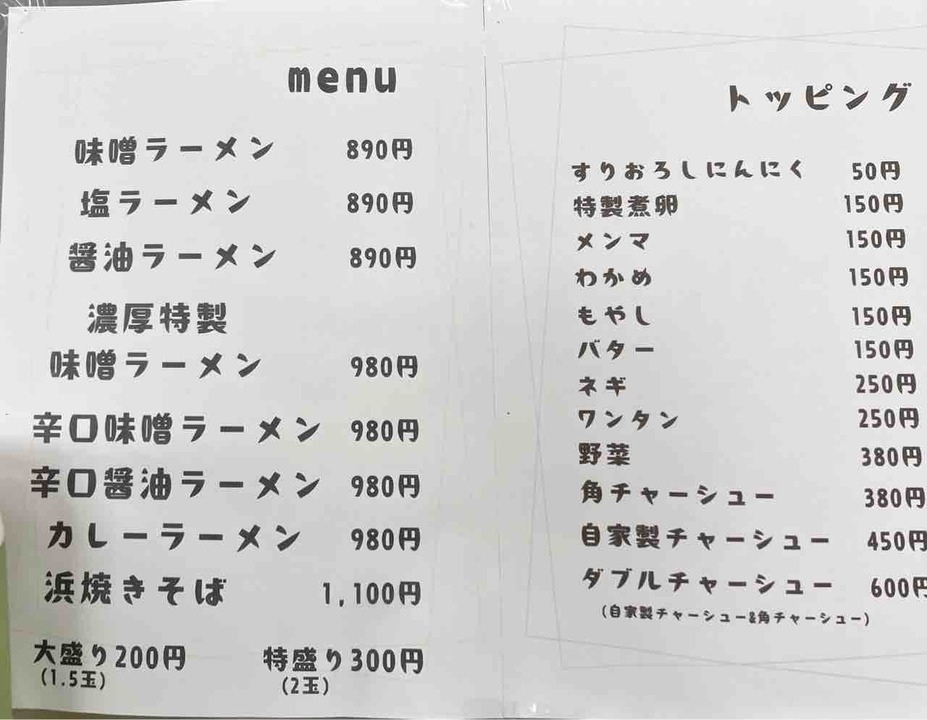 menu
味噌ラーメン 890円
塩ラーメン 890円
醤油ラーメン 890円
濃厚特製
味噌ラーメン 980円
辛口味噌ラーメン 980円
辛口醤油ラーメン 980円
カレーラーメン 980円
浜焼きそば 1,100円
大盛り200円 特盛り300円
(1.5玉) (2玉)
トッピング
すりおろしにんにく 50円
特製煮卵 150円
メンマ 150円
わかめ 150円
もやし 150円
バター 150円
ネギ 250円
ワンタン 250円
野菜 380円
角チャーシュー 380円
自家製チャーシュー 450円
ダブルチャーシュー 600円
(自家製チャーシュー&角チャーシュー)